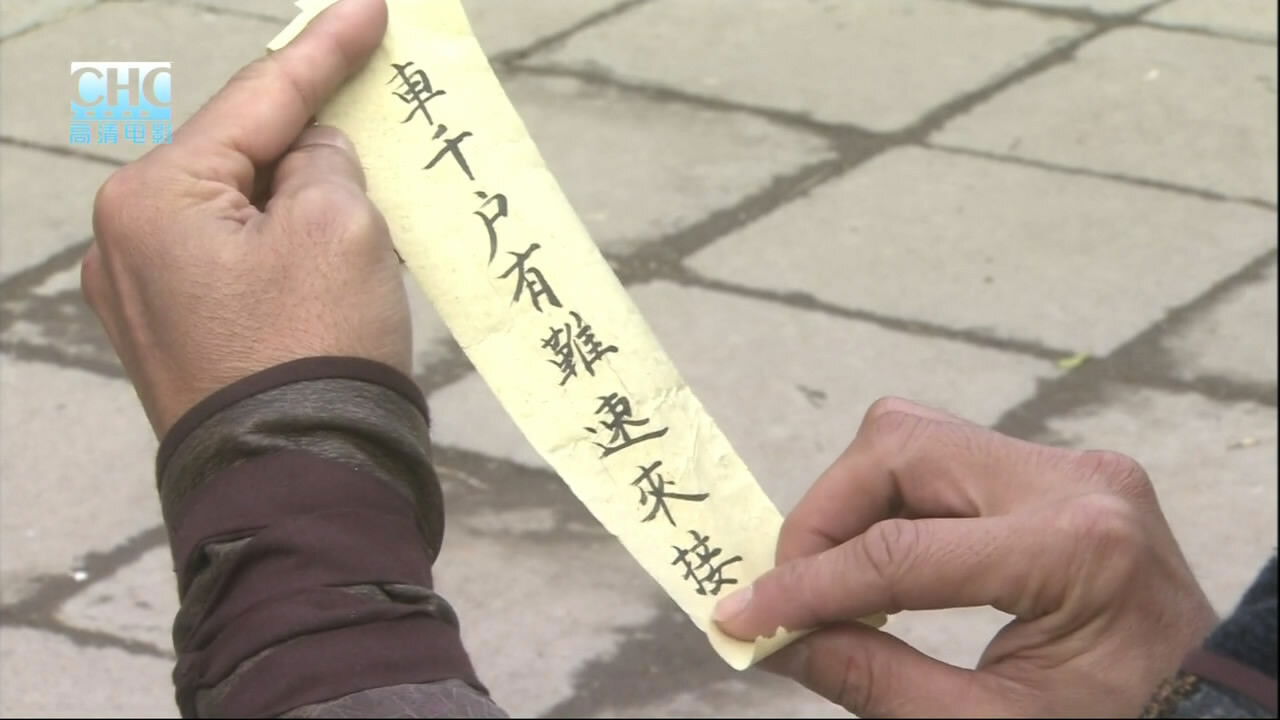 CHC
高清电影
車千户有難速來接